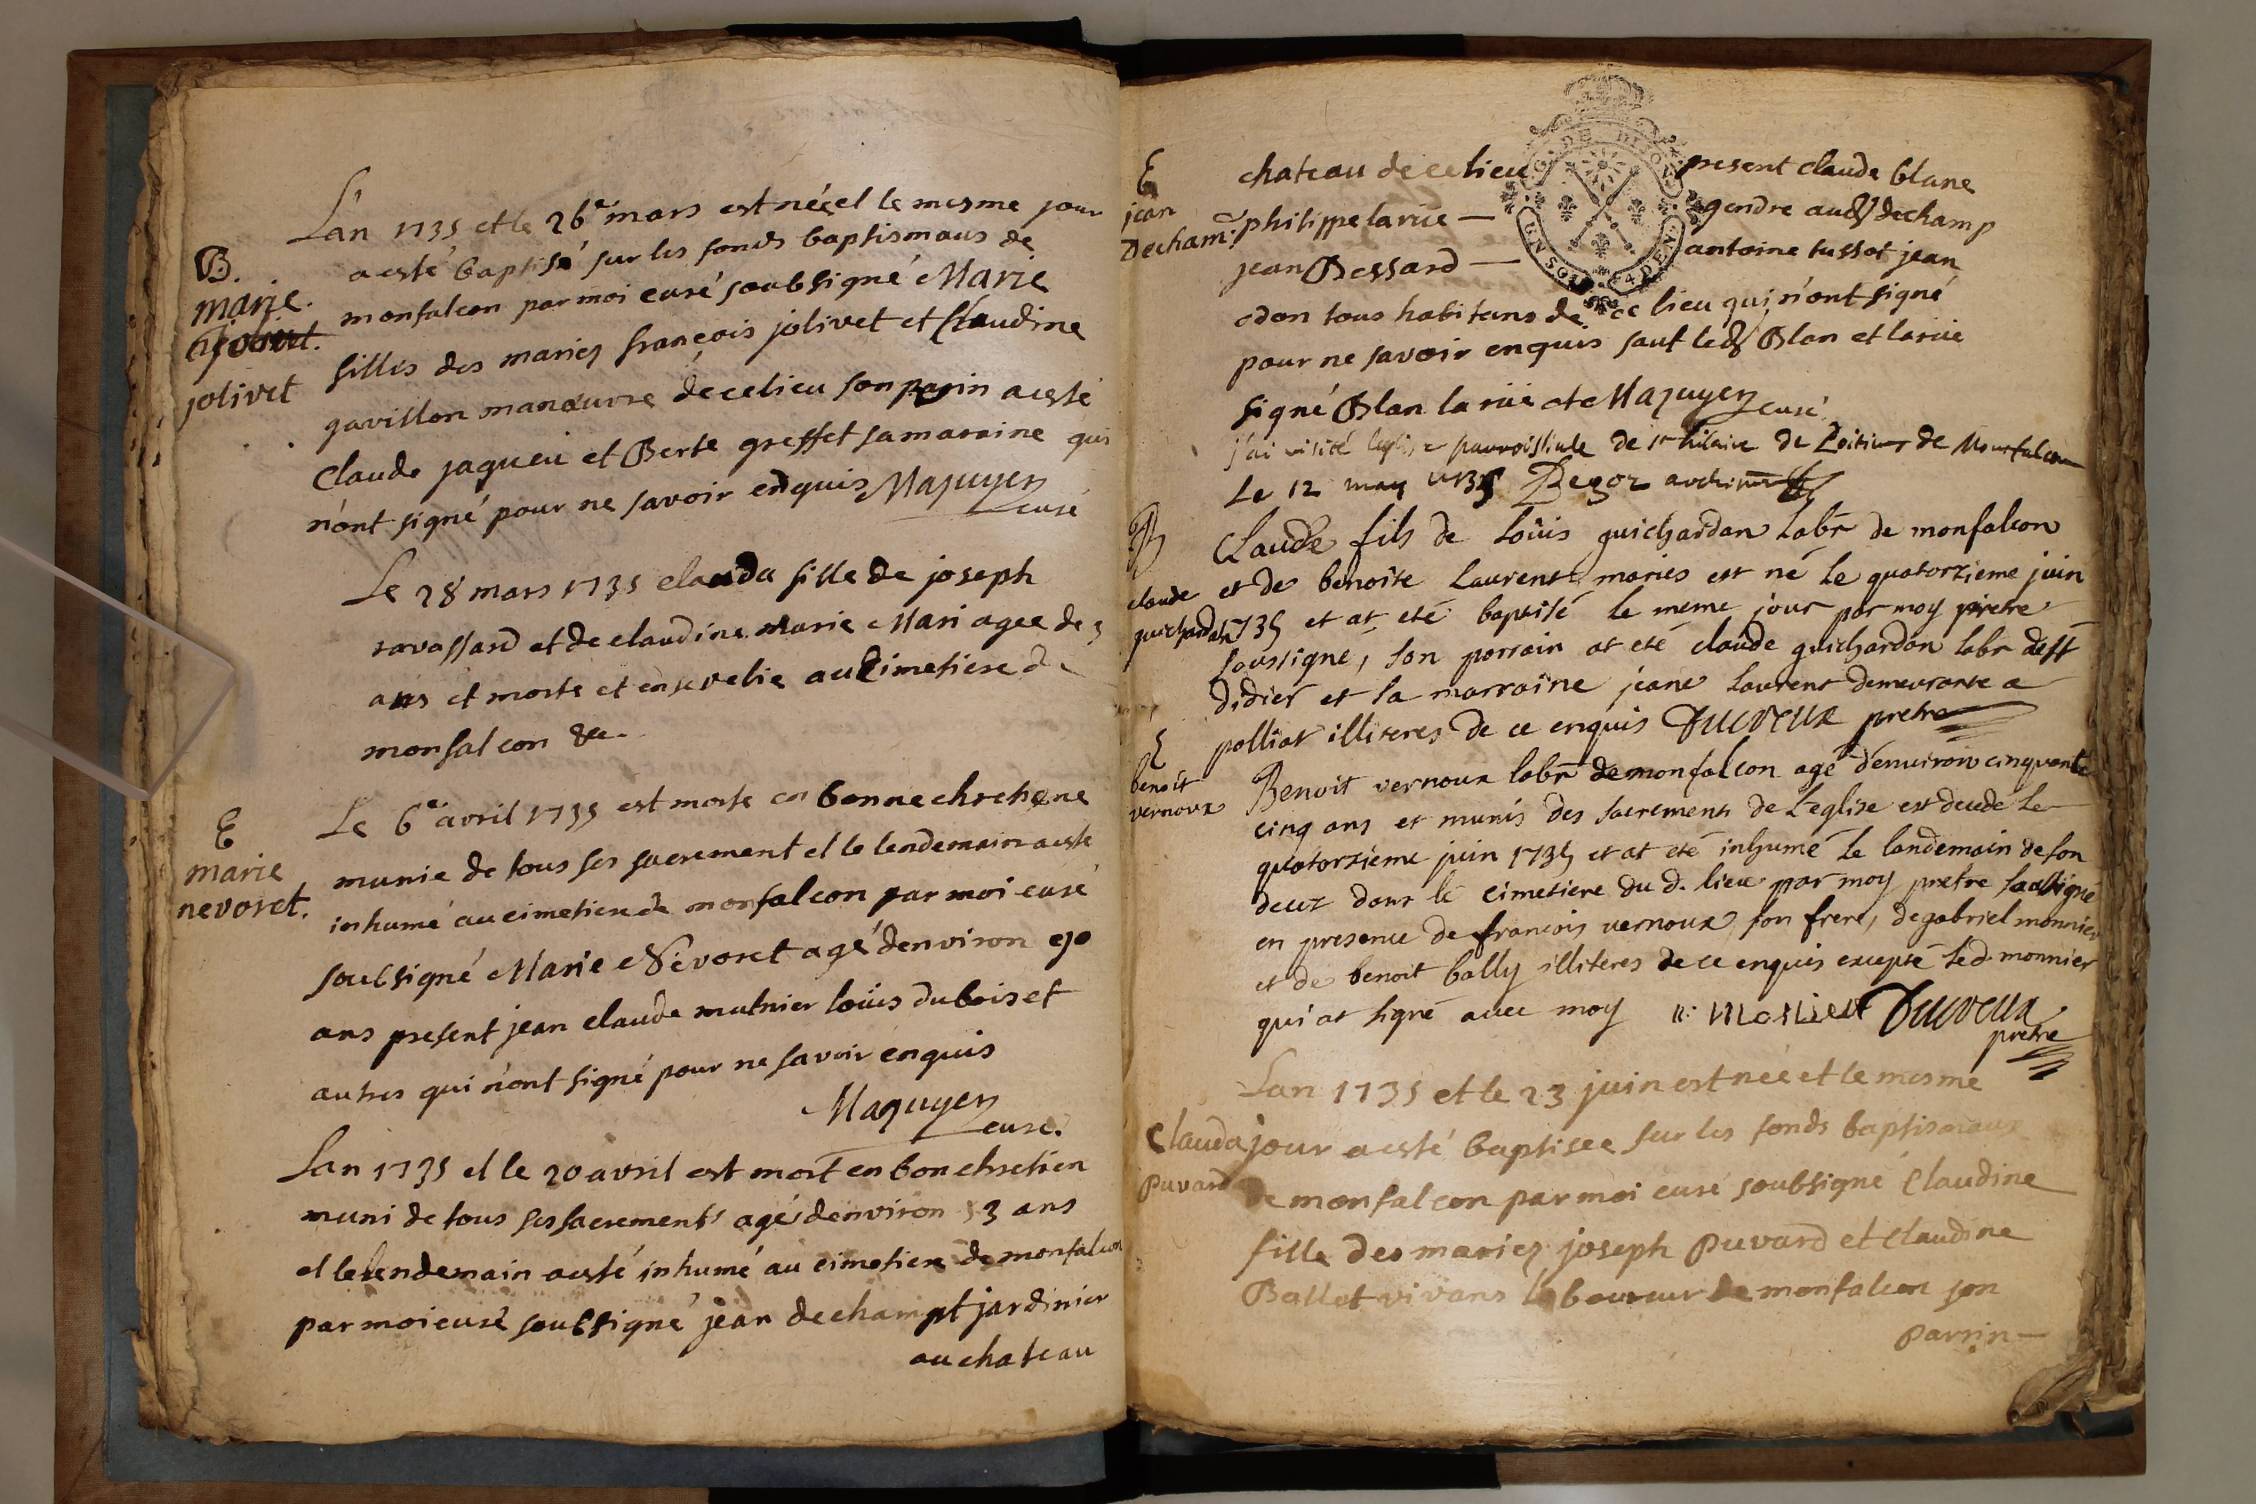 B.
marie.
jolivet
L'an 1735 et le 26e mars est néé et le mesme jour
a esté baptisé sur les fonds baptismaus de
monfalcon par moi curé soubsigné Marie
fille des mariez françois jolivet et Claudine
gavillon manœuvre de ce lieu son parin a esté
Claude jagueu et Berte greffet sa maraine qui
n'ont signé pour ne savoir enquis Mazuyer
curé
Le 28 mars 1735 clauda fille de joseph
ravassard et de claudine marie Mari agee de 3
ans et morte et ensevelie au Cimetiere de
monfalcon &c.
E
marie
nevoret.
Le 6e avril 1735 est morte en bonne chretiene
munie de tous ses sacrement et le lendemain a esté
inhumé au cimetiere de monfalcon par moi curé
soubsigné Marie Nevoret agé denviron 70
ans present jean claude mutnier loüis dubois et
autres qui n'ont signé pour ne savoir enquis
Mazuyer
curé.
Lan 1735 et le 20 avril est mort en bon chretien
muni de tous ses sacrements agé denviron 53 ans
et le lendemain a esté inhumé au cimetiere de monfalcon
par moi curé soubsigné jean dechampt jardinier
au chateau
E
jean
Decham.
chateau de ce lieu present claude blanc
philippe la rüe — gendre aud dechamp
jean Bessard — antoine tussot jean
odon tous habitans de ce lieu qui n'ont signé
pour ne savoir enquis sauf led Blan et la rüe
signé Blan la rüe et Mazuyer curé
j'ai visité leglise parroissiale de st hilaire de de Montfalcon
Le 12 may 1735 Begoz
B
claude
guichardan
Claude fils de Loüis guichardan labr de monfalcon
et de benoite Laurent mariés est né le quatorzieme juin
1735 et at eté baptisé le meme jour par moy pretre
soussigné, son parrain at eté claude guichardon labr de st
didier et la marraine jeane Laurent demeurante a
polliat illiteres de ce enquis Ducreux pretre
E
benoit
vernoux
Benoit vernoux labr de monfalcon agé d'enuiron cinquante
cinq ans et munis des sacrements de Leglise est decedé le
quatorzieme juin 1735 et at eté inhumé le landemain de son
deces dans le cimetiere du d. lieu par moy pretre soussigné
en presence de francois vernoux son frere, de gabriel monnier
et de benoit bally illiteres de ce enquis excepté led. monnier
qui at signé avec moy Ducreux
pretre
Clauda
Puvard
Lan 1735 et le 23 juin est néé et le mesme
jour a esté baptisee sur les fonds baptismaux
de monfalcon par moi curé soubsigné Claudine
fille des mariez joseph Puvard et Claudine
Ballet vivans laboureur de monfalcon son
parrin —